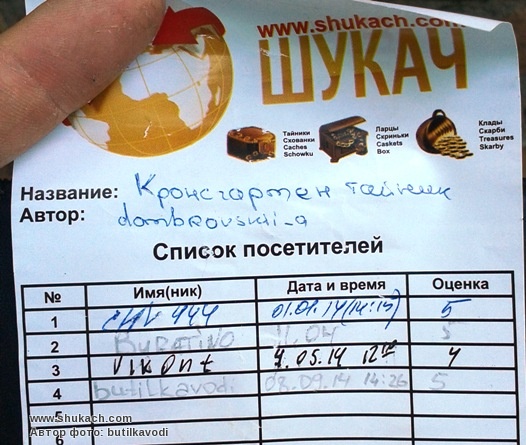 www.shukach.com
ШУКАЧ
Тайники
Схованки
Caches
Schowku
Ларцы
Скриньки
Caskets
Box
Клады
Скарби
Treasures
Skarby
Название: Кронсгартен тайник
Автор: dombrovskii_a
Список посетителей
№ Имя(ник) Дата и время Оценка
1 444 5
2 BURATINO 5
3 VIKONT 4.05.14 4
4 butilkavodi 02.09.14 14:26 5
5
6
www.shukach.com
Автор фото: butilkavodi